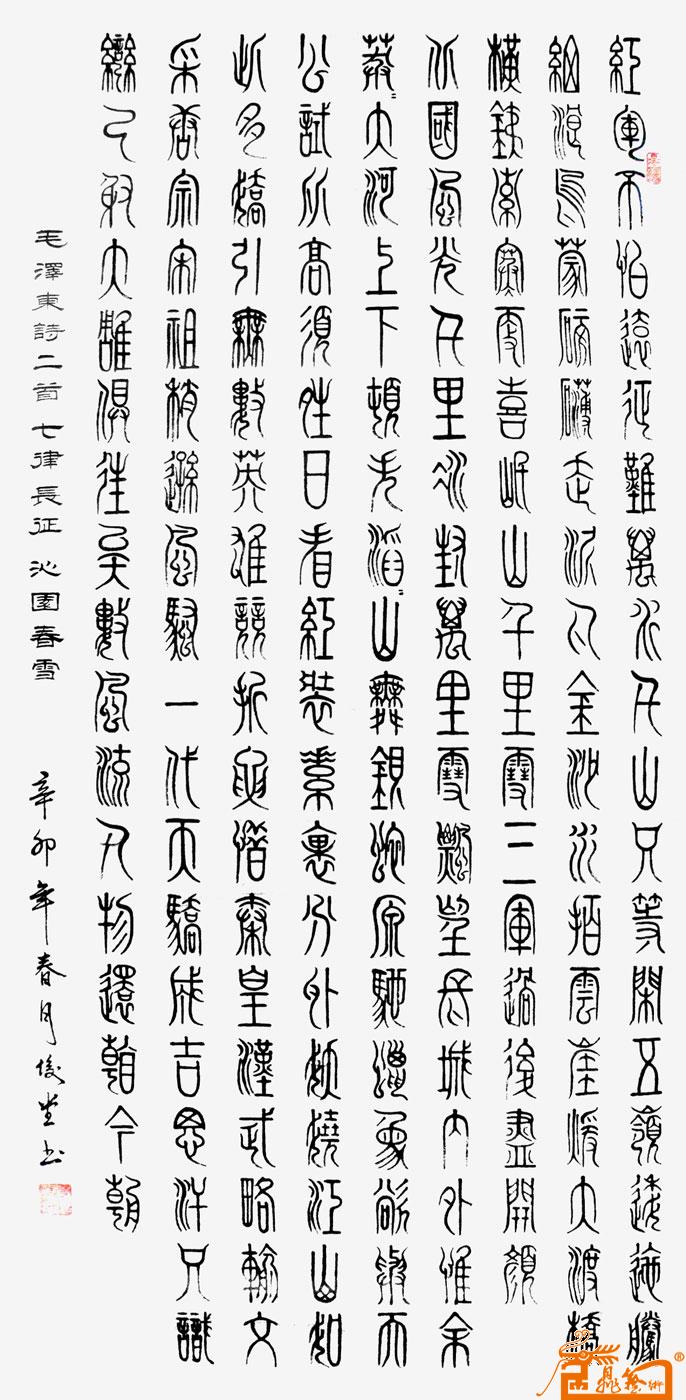 紅軍不怕遠征難萬水千山只等閑五嶺逶迤騰
細浪烏蒙磅礴走泥丸金沙水拍雲崖暖大渡橋
橫鐵索寒更喜岷山千里雪三軍過後盡開顏
北國風光千里冰封萬里雪飄望長城內外惟余
莽〻大河上下頓失滔〻山舞銀蛇原馳蠟象欲與天
公試比高須晴日看紅裝素裹分外妖嬈江山如
此多嬌引無數英雄競折腰惜秦皇漢武略輸文
采唐宗宋祖稍遜風騷一代天驕成吉思汗只識
彎弓射大雕俱往矣數風流人物還看今朝
毛澤東詩二首七律長征沁園春雪
辛卯年春月俊書